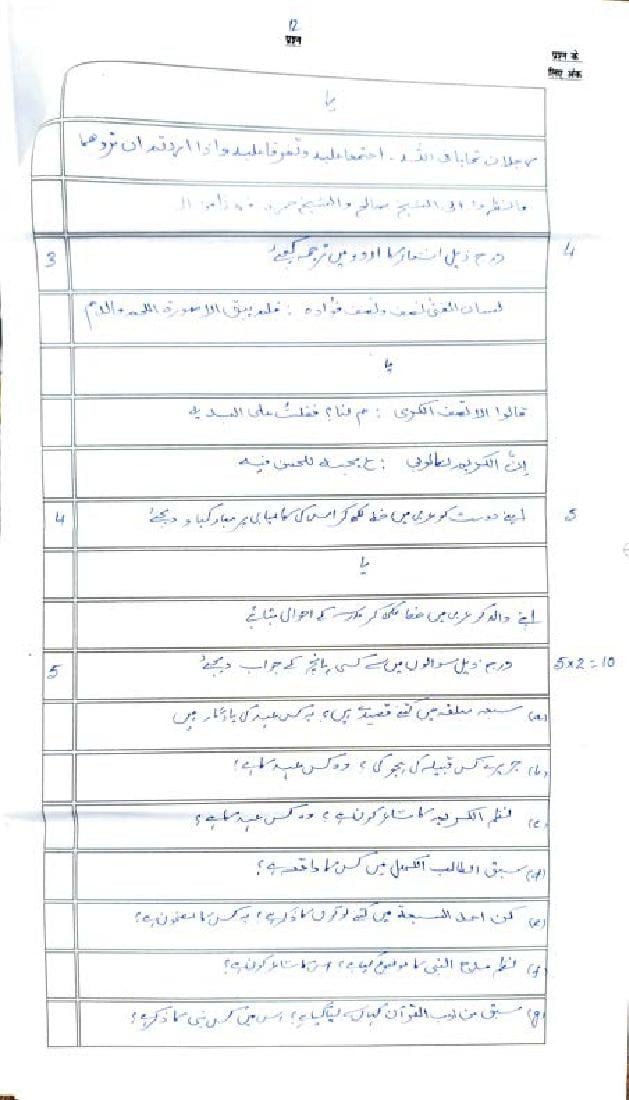 12
प्रश्न
प्रश्न के
लिए अंक
یا
رجلان تحابا فی اللہ۔ اجتمعا علیہ وتفرقا علیہ واذا اردتم ان تروهما
فانظروا الی الشیخ صالح والشیخ حمزہ
3 درج ذیل اشعار کا اردو میں ترجمہ کیجئے 4
لسان الفتی نصف ونصف فؤادہ : فلم یبق الا صورۃ اللحم والدم
یا
قالوا الا تصف الکریم : م لنا؟ فقلت علی البدیہ
إنّ الکریم لکالربیع : ع یحبہ للحسن فیہ
4 اپنے دوست کو عربی میں خط لکھ کر اس کی کامیابی پر مبارکباد دیجئے 5
یا
اپنے والد کو عربی میں خط لکھ کر مدرسہ کے احوال بتائیے
5 درج ذیل سوالوں میں سے کسی پانچ کے جواب دیجئے 5×2=10
(a) سبعہ معلقہ میں کتنے قصیدے ہیں؟ یہ کس عہد کی یادگار ہیں
(b) جریر نے کس قبیلہ کی ہجو کی؟ وہ کس عہد کا ہے؟
(c) نظم الکریم کا شاعر کون ہے؟ وہ کس عہد کا ہے؟
(d) سبق الطالب الکھل میں کس کا واقعہ ہے؟
(e) کن احد السبعۃ میں کتنے لوگوں کا ذکر ہے؟ یہ کس کا مضمون ہے؟
(f) نظم مدح النبی کا موضوع کیا ہے؟ اس کا شاعر کون ہے؟
(g) سبق من ادب القرآن کہاں سے لیا گیا ہے؟ اس میں کس نبی کا ذکر ہے؟